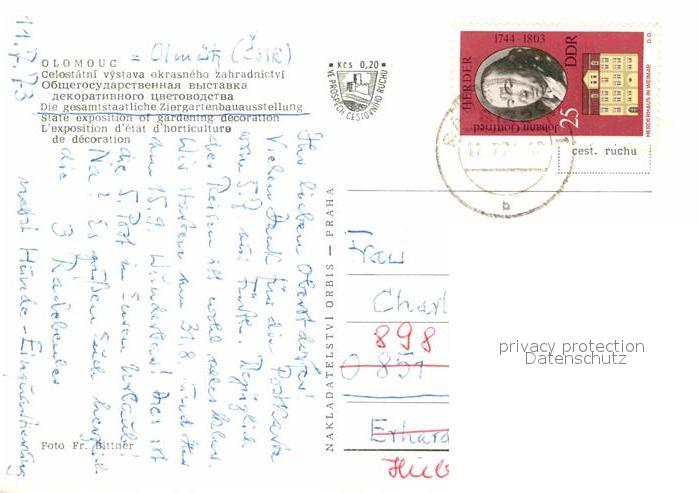 11.7.73
OLOMOUC = Olmütz (ČSSR)
Celostátní výstava okrasného zahradnictví
Общегосударственная выставка
декоративного цветоводства
Die gesamtstaatliche Ziergartenbauausstellung
State exposition of gardening decoration
L'exposition d'état d'horticulture
de décoration
Kčs 0,20
VE PROSPĚCH CESTOVNÍHO RUCHU
HERDER
1744-1803
DDR
25
Johann Gottfried
HERDERHAUS IN WEIMAR
cest. ruchu
b
NAKLADATELSTVÍ ORBIS — PRAHA
Ihr lieben
Vielen Dank für die Postkarte
vom 5.7. aus
der Reisen ist wohl alles klar.
Wir starten am 31.8. und
am 15.9. Wunderbar! Das ist
die 5. Post in Euren Urlaub.
Na! Es grüßen Euch herzlich
die 3 Radebeuler
nebst Hunde-
Frau
Charl
898
0 851
Erhard
Foto Fr. Bittner
privacy protection
Datenschutz